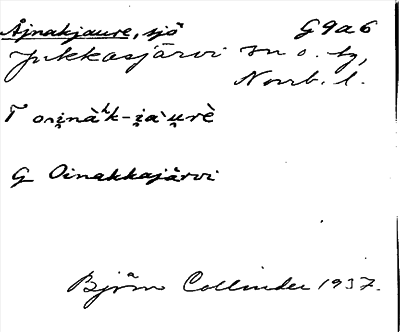 Åjnakjaure, sjö G9a6
Jukkasjärvi sn o. tg,
Norrb. l.
T
G Oinakkajärvi
Björn Collinder 1937.